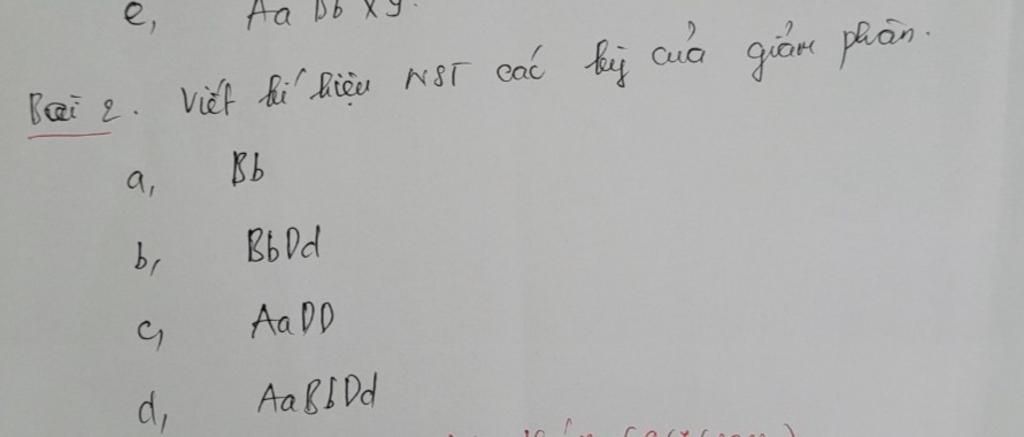 e, Aa Bb XY.
Bài 2. Viết kí hiệu NST các kỳ của giảm phân.
a, Bb
b, BbDd
c, AaDD
d, AaBbDd